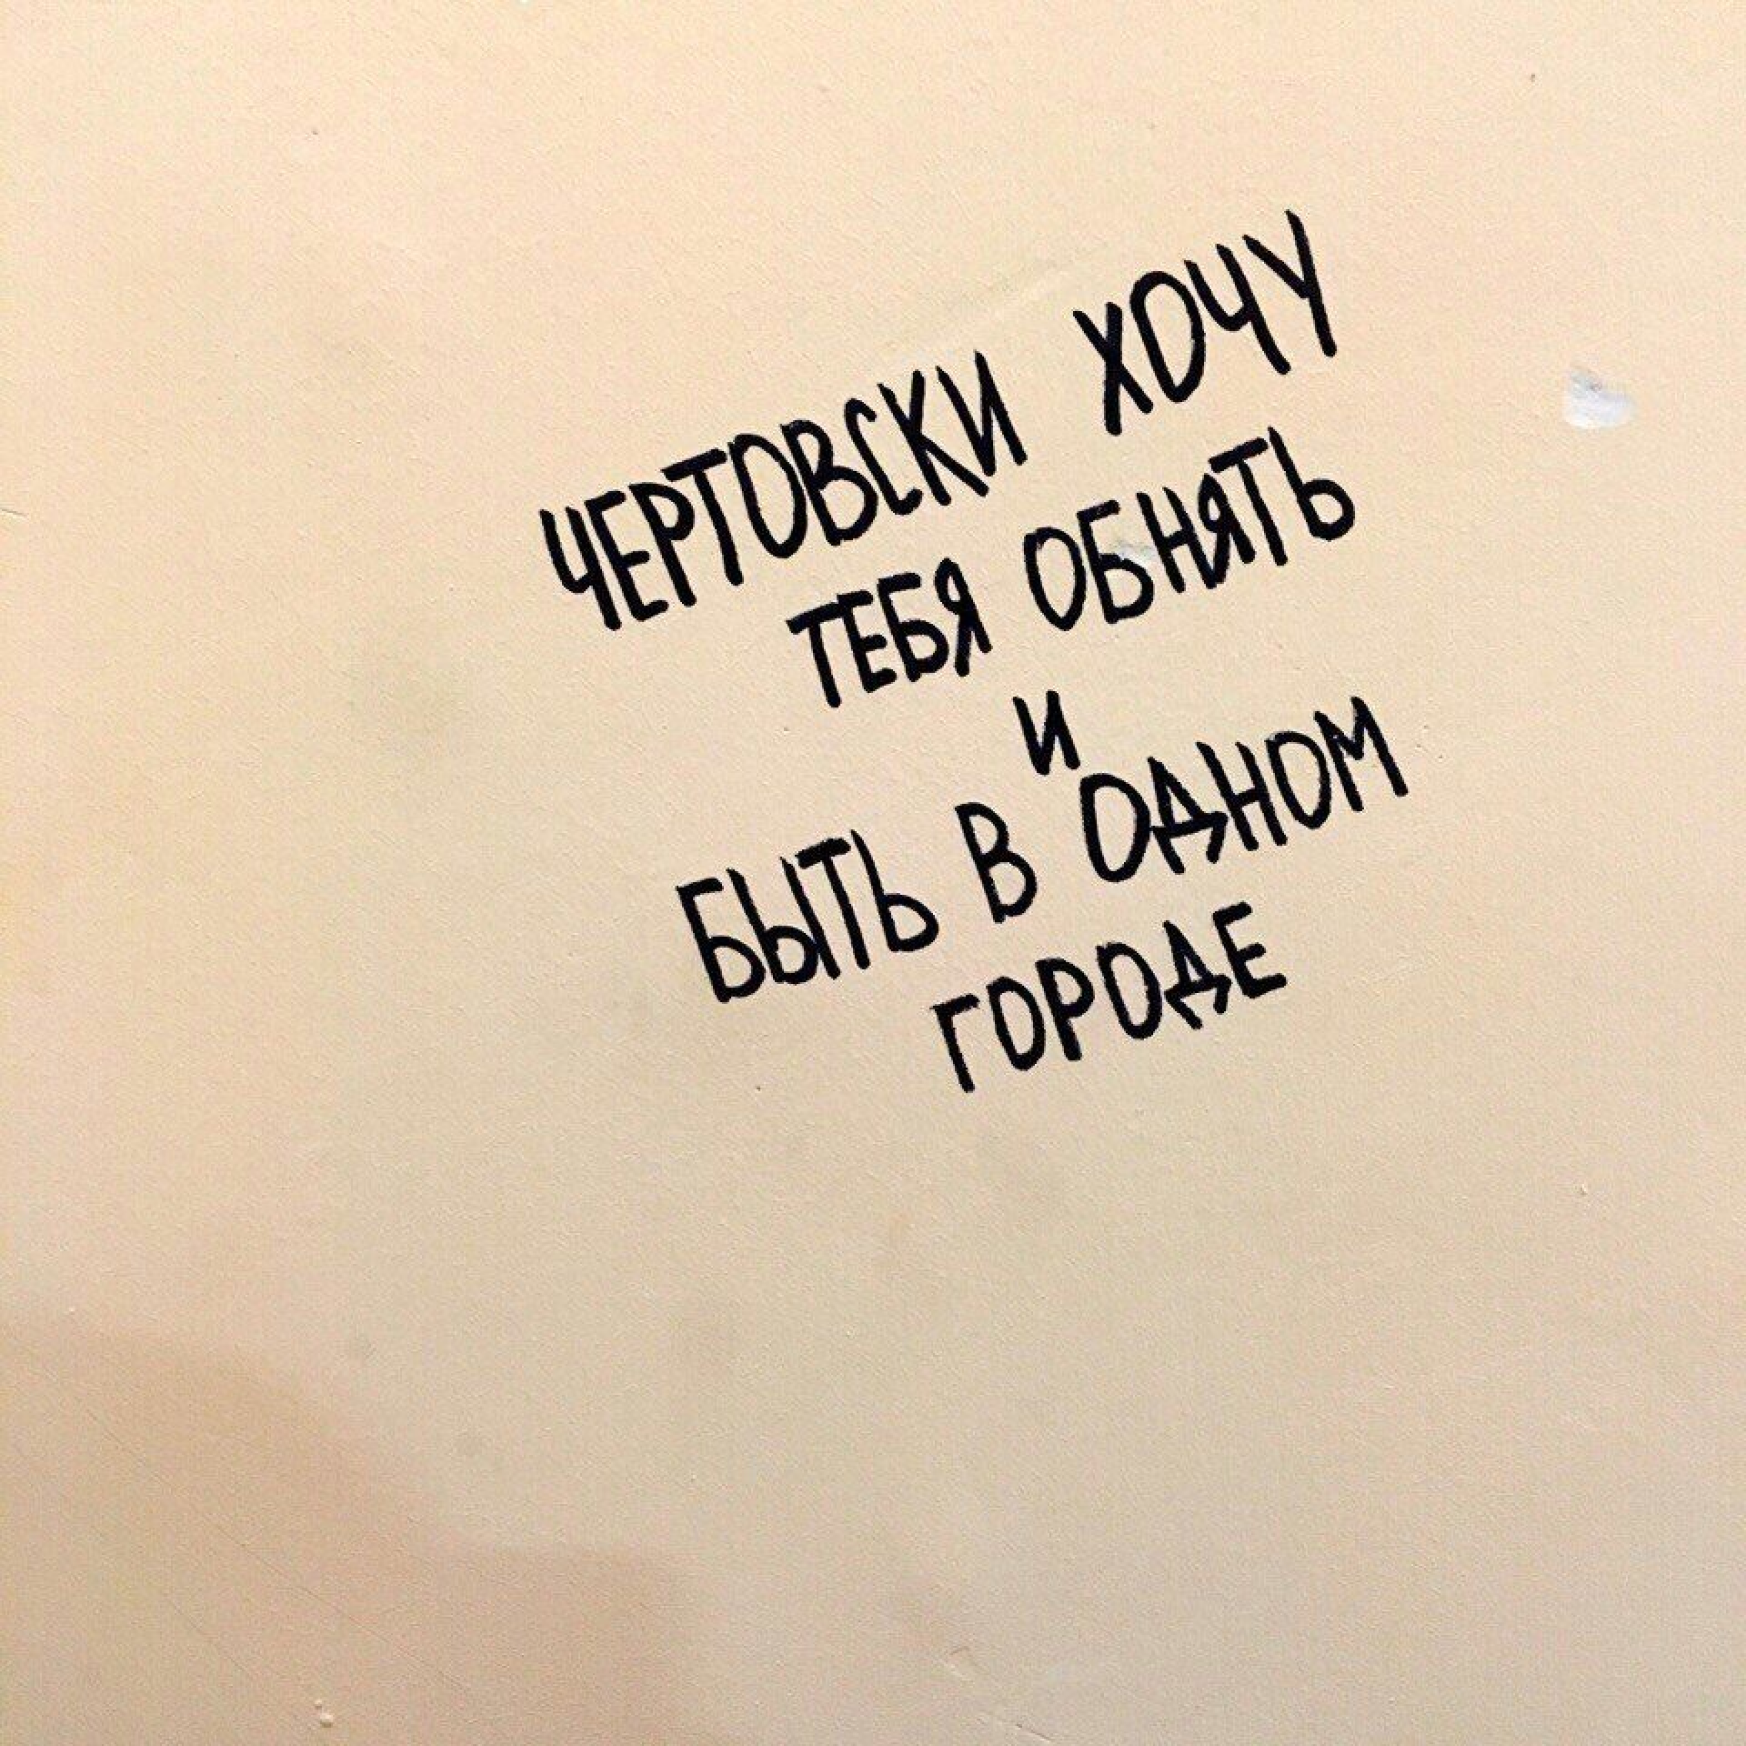 ЧЕРТОВСКИ ХОЧУ
ТЕБЯ ОБНЯТЬ
И
БЫТЬ В ОДНОМ
ГОРОДЕ